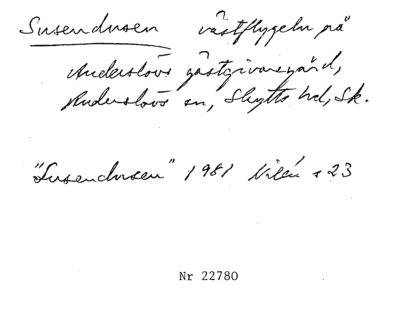 Susendusen västflygeln på
Anderslövs gästgivaregård,
Anderslövs sn, Skytts hd, Sk.
"Susendusen" 1981 Nilén s 23
Nr 22780